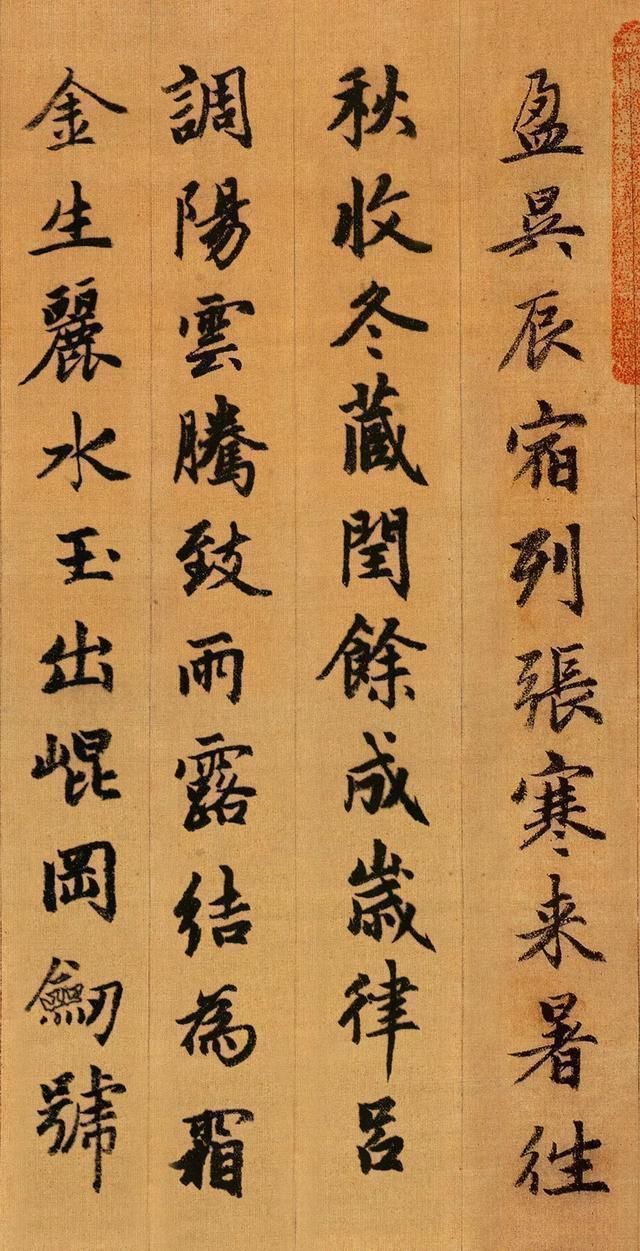 盈昃辰宿列張寒来暑往
秋收冬蔵閏餘成歲律吕
調陽雲騰致雨露結為霜
金生麗水玉出崐岡劒號